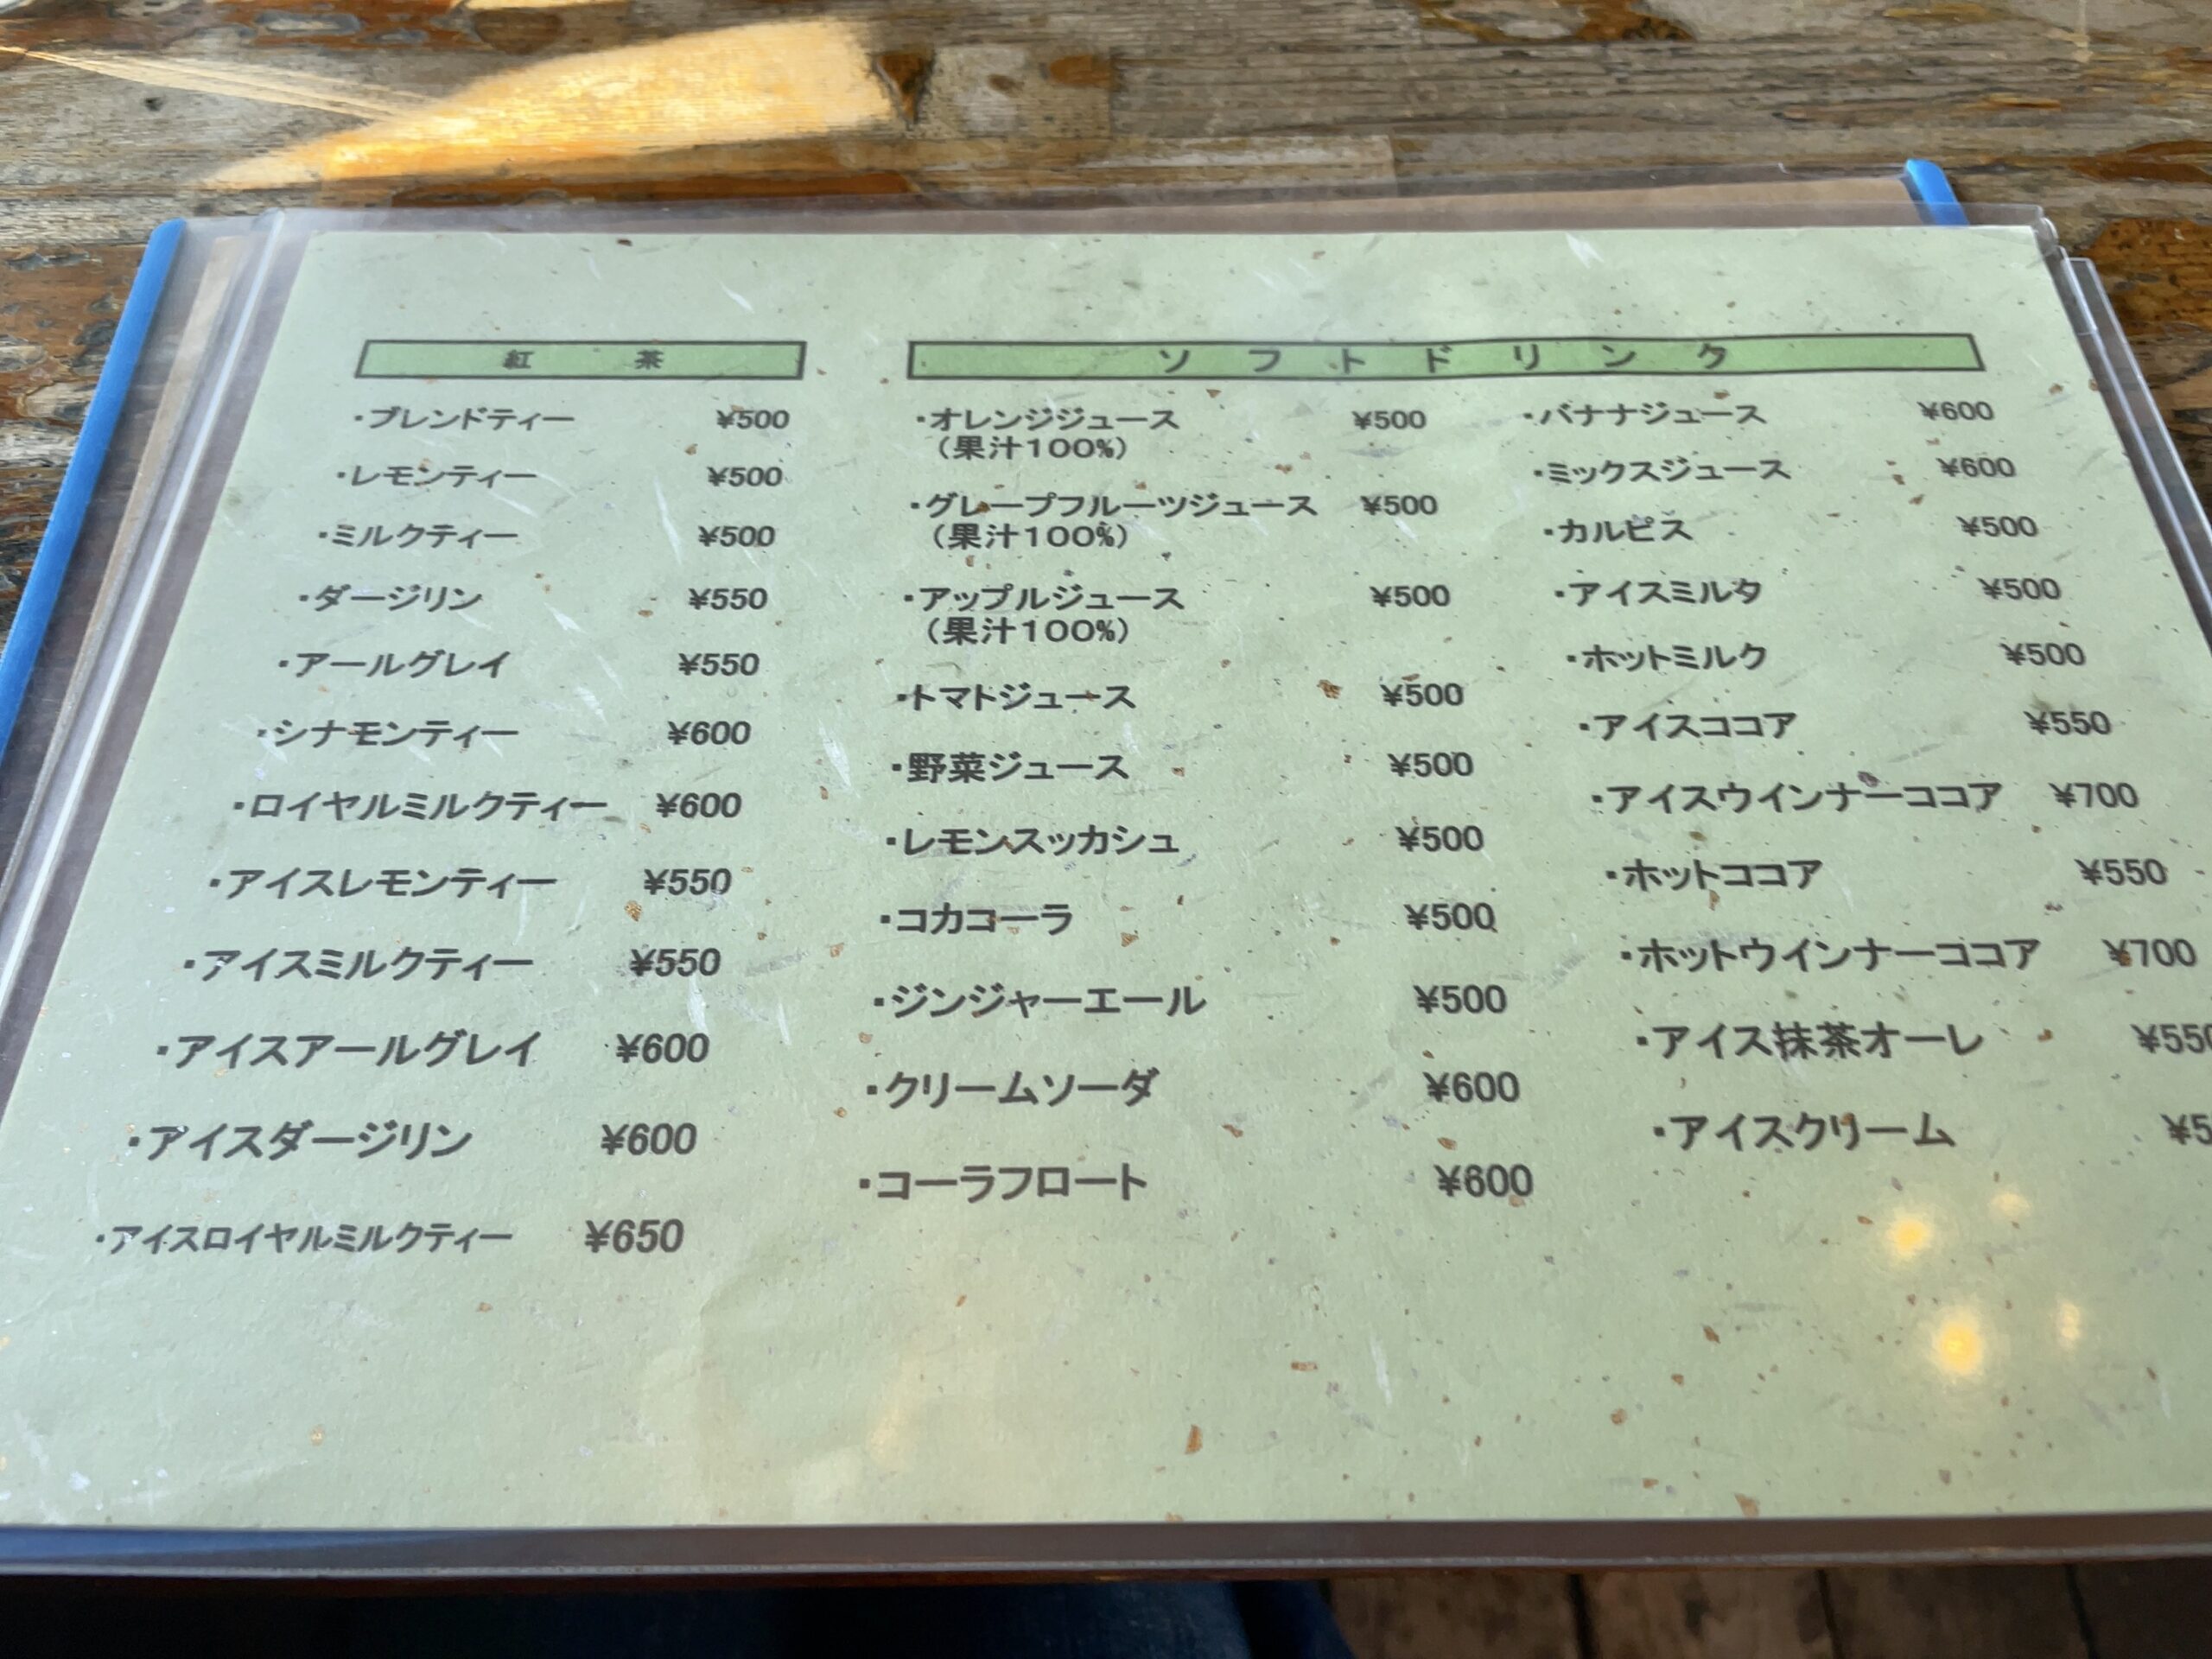 紅茶
・ブレンドティー ¥500
・レモンティー ¥500
・ミルクティー ¥500
・ダージリン ¥550
・アールグレイ ¥550
・シナモンティー ¥600
・ロイヤルミルクティー ¥600
・アイスレモンティー ¥550
・アイスミルクティー ¥550
・アイスアールグレイ ¥600
・アイスダージリン ¥600
・アイスロイヤルミルクティー ¥650
ソフトドリンク
・オレンジジュース ¥500
(果汁100%)
・グレープフルーツジュース ¥500
(果汁100%)
・アップルジュース ¥500
(果汁100%)
・トマトジュース ¥500
・野菜ジュース ¥500
・レモンスッカシュ ¥500
・コカコーラ ¥500
・ジンジャーエール ¥500
・クリームソーダ ¥600
・コーラフロート ¥600
・バナナジュース ¥600
・ミックスジュース ¥600
・カルピス ¥500
・アイスミルタ ¥500
・ホットミルク ¥500
・アイスココア ¥550
・アイスウインナーココア ¥700
・ホットココア ¥550
・ホットウインナーココア ¥700
・アイス抹茶オーレ ¥550
・アイスクリーム